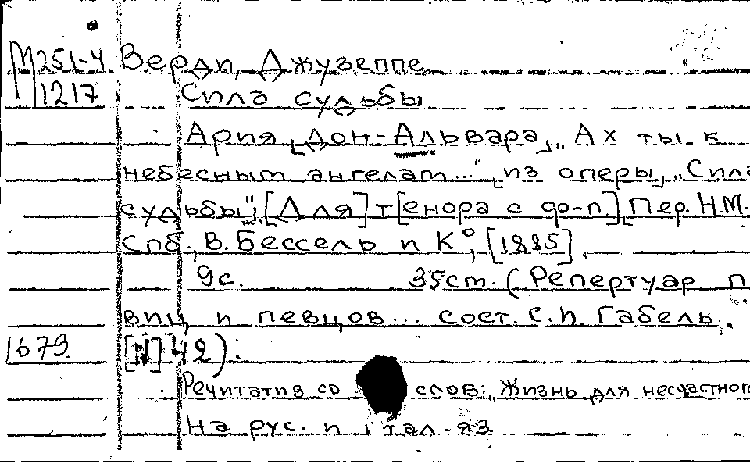 М251-4 Верди, Джузеппе
1217 Сила судьбы
Ария [дон-Альвара] „Ах ты к
небесным ангелам..." из оперы „Сила
судьбы". [Для] т[енора с ф-п.] Пер. Н.М.
Спб., В. Бессель и К°, [1885].
9с. 35см. (Репертуар п
виц и певцов... сост. С.И. Габель.
1679 [N] 42).
Речитатив со слов: „Жизнь для несчастного
На рус. и итал. яз